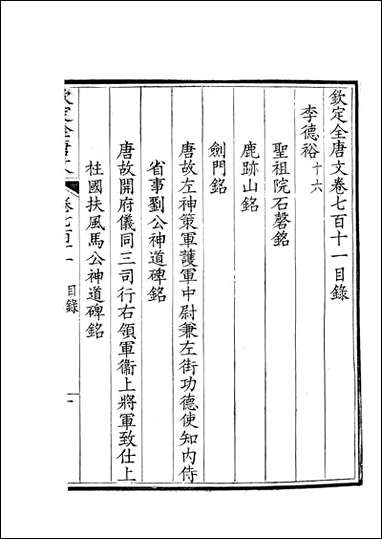 欽定全唐文卷七百十一目錄
李德裕十六
聖祖院石磬銘
鹿跡山銘
劍門銘
唐故左神策軍護軍中尉兼左街功德使知內侍
省事劉公神道碑銘
唐故開府儀同三司行右領軍衞上將軍致仕上
柱國扶風馬公神道碑銘
目錄
一